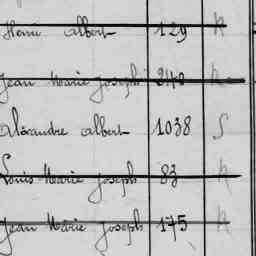 Henri Albert 129 R
Jean Marie Joseph 240 R
Alexandre Albert 1038 S
Louis Marie Joseph 83 R
Jean Marie Joseph 175 R